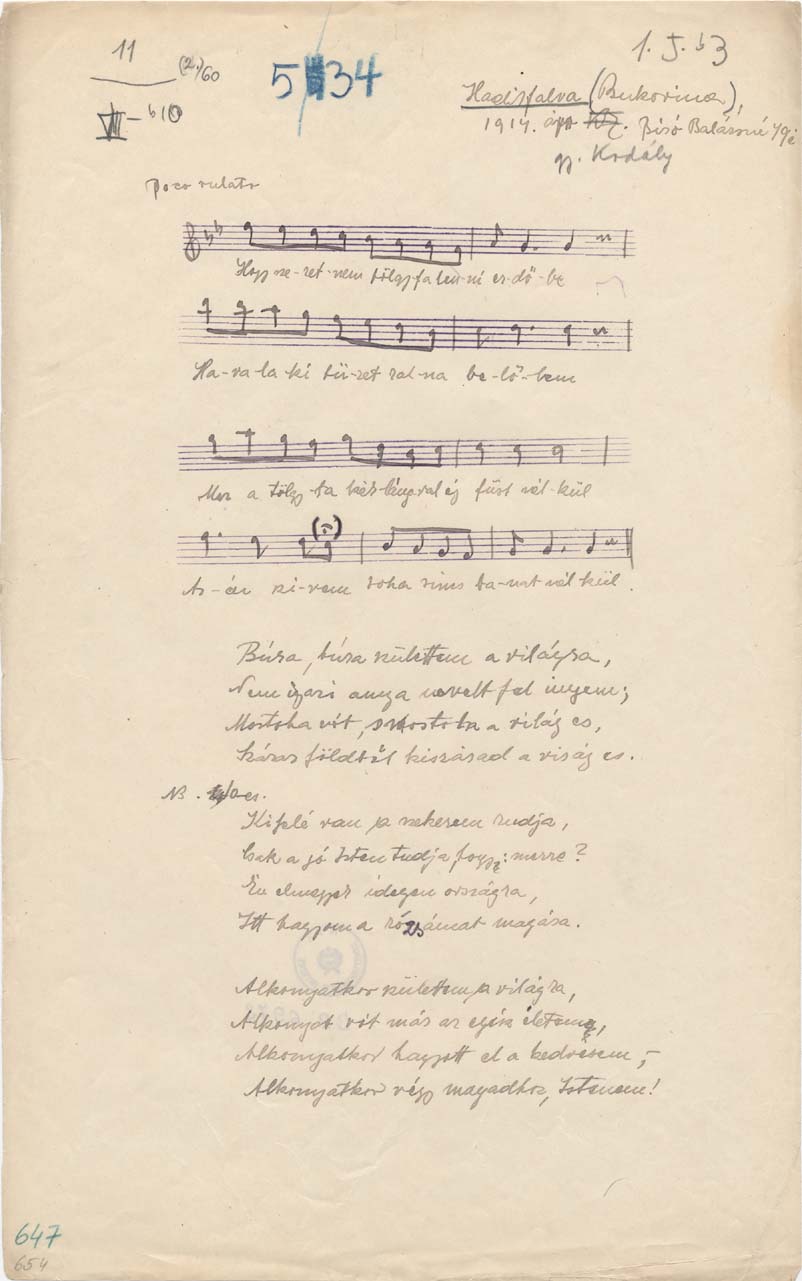 11
(2.)/60
VII – b10
5 34
1. I. b3
Hadikfalva (Bukovina),
1914. ápr. Biró Balázsné 49é
gy. Kodály
Poco rubato
Hogy ne-ret-nem tölgyfa len-ni er-dő-be
Ha va-la-ki tü-zet rak-na be-lő-lem
Mer a tölgy-fa kék lángval ég füst nél-kül
Az én szi-vem soha sincs bá-nat nél-kül.
Búra, búra születtem a világra,
Nem igazi anya nevelt fel ingem;
Mostoha vót, mostoha a világ es,
Száraz földbűl kiszárad a virág es.
NB. es.
Kifelé van a szekerem rudja,
Csak a jó Isten tudja, hogy: merre?
Én elmegyek idegen országra,
Itt hagyom a rózsámat magára.
Alkonyatkor születtem a világra,
Alkonyat vót már az egész életem,
Alkonyatkor hagyott el a kedvesem,–
Alkonyatkor végy magadhoz, Istenem!
647
654